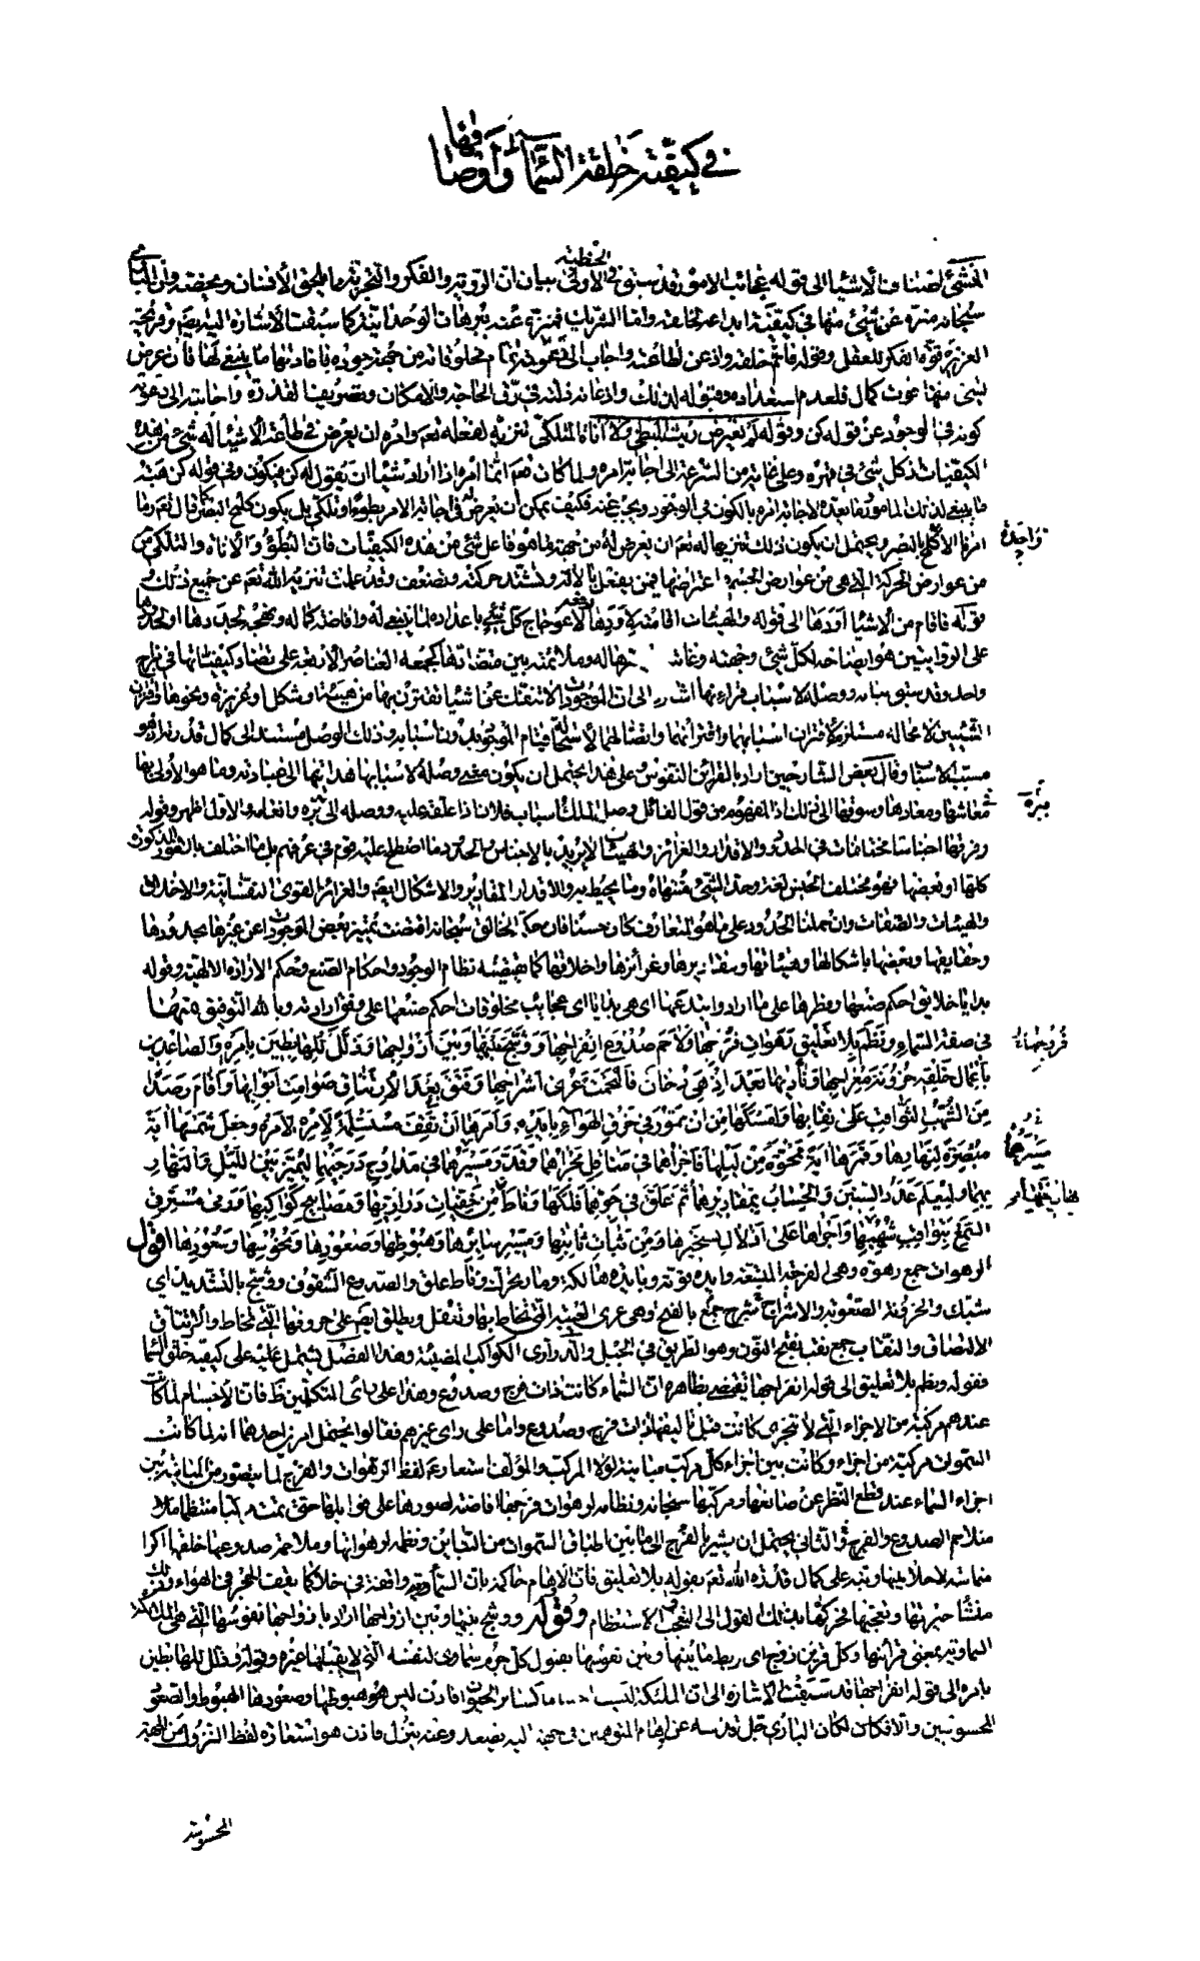 في كيفية خلقة السماء وأوصافها
المنشئ أصناف الأشياء إلى قوله عجائب الأمور قد سبق في الخطبة الأولى بيان أن الروية والفكر والتجربة مما يلحق الإنسان ويخصه وإن الباري
سبحانه منزه عن شيء منها في كيفية إبداعه لخلقه وأما الشريك فمنزه عنه ببرهان الوحدانية كما سبقت الإشارة إليه أيضا وقريحة
الغريزة قوة الفكر للعقل وقوله فأتم خلقه وأذعن لطاعته وأجاب إلى دعوته تمام مخلوقاته من جهة جوده بإفادتها ما ينبغي لها فإن عرض
لشيء منها فوت كمال فلعدم استعداده وقبوله لذلك وإذعانه ذلته في رق الحاجة والإمكان وتصريفا لقدرته وإجابته إلى دعوته
كونه في الوجود عن قوله كن وقوله لم يعترض ريث المبطئ ولا أناة المتلكئ تنزيه لفعله تعالى وأمره أن يعرض في طاعة الأشياء له شيء من هذه
الكيفيات إذ كل شيء في قهره وعلى غاية من السرعة إلى إجابة أمره ولما كان تعالى إنما أمره إذا أراد شيئا أن يقول له كن فيكون وفي قوله كن هبة
ما ينبغي لذلك المأمور بعده لإجابة أمره بالكون في الوجود ويجب عنه فكيف يمكن أن يعرض له في إجابة الأمر بطوء أو تلكئ بل يكون كلمح البصر كما قال تعالى وما
أمرنا إلا واحدة كلمح بالبصر ويحتمل أن يكون ذلك تنزيها له تعالى أن يعرض له من جهة ما هو فاعل شيء من هذه الكيفيات فإن البطؤ والأناة والتلكئ من
من عوارض الحركة التي هي من عوارض الجسم اعتراضها فيمن يفعل بالآلة وتشتد حركته وتضعف وقد علمت تنزيه الله تعالى عن جميع ذلك و
قوله فأقام من الأشياء أودها إلى قوله والهيئات إقامته لأودها رفعه لاعوجاج كل شيء بإعداده لما ينبغي له وإفاضة كماله ونهجه لجددها أو لحدودها
على الروايتين هو إيضاحه لكل شيء وجهته وغايته له وملائمته بين متضاداتها كجمعه العناصر الأربعة على تضاد كيفياتها في مزاج
واحد وقد سبق بيانه ووصله لأسباب قرائنها إشارة إلى أن الموجودات لا تنفك عن أشياء تقترن بها من هيئة أو شكل أو غريزة ونحوها واقتران
الشيئين لا محالة مستلزم لاقتران أسبابهما واقترانهما واتصالهما لاستحالة قيام الموجود بدون أسبابه وذلك الوصل مستند إلى كمال قدرته إذ هو
مسبب الأسباب وقال بعض الشارحين أراد بالقرائن النفوس وعلى هذا يحتمل أن يكون معنى وصله لأسبابها هدايتها إلى عبادته وما هو الأولى بها
في معاشها ومعادها وسوقها إلى ذلك إذ المفهوم من قول القائل وصل الملك أسباب فلان إذا علقه عليه ووصله إلى مبرته وإنعامه والأول أظهر وقوله
وفرقها أجناسا مختلفات في الحدود والأقدار والغرائز والهيئات لا يريد بالأجناس والحدود ما اصطلح عليه قوم في عرفهم بل ما اختلف بالأمور المذكورة
كلها أو بعضها فهو مختلف الجنس لغة وحد الشيء منتهاه وما يحيط به والأقدار المقادير والأشكال أيضا والغرائز القوى النفسانية والأخلاق
والهيئات والصفات وإن حملنا الحدود على ما هو المتعارف كان حسنا فإن حكمة الخالق سبحانه اقتضت تمييز بعض الموجودات عن غيرها بحدودها
وحقايقها وبعضها بأشكالها وهيئاتها ومقاديرها وغرائزها وأخلاقها كما يقتضيه نظام الوجود وأحكام الصنع وحكم الإرادة الإلهية وقوله
بدايا خلايق أحكم صنعها وفطرها على ما أراد وابتدعها أي هي بدايا أي عجائب مخلوقات أحكم صنعها على وفق إرادته وبالله التوفيق منها
في صفة السماء ونظم بلا تعليق رهوات فرجها ولاحم صدوع انفراجها ووشج بينها وبين أزواجها وذلل للهابطين بأمره والصاعدين
بأعمال خلقه حزونة معراجها وناداها بعد إذ هي دخان فالتحمت عرى أشراجها وفتق بعد الارتتاق صوامت أبوابها وأقام رصدا
من الشهب الثواقب على نقابها وأمسكها من أن تمور في خرق الهواء بأيده وأمرها أن تقف مستسلمة لأمره وجعل شمسها آية
مبصرة لنهارها وقمرها آية ممحوة من ليلها فأجراهما في مناقل مجراهما وقدر مسيرهما في مدارج درجهما ليميز بين الليل والنهار
بهما وليعلم عدد السنين والحساب بمقاديرهما ثم علق في جوها فلكها وناط بها زينتها من خفيات دراريها ومصابيح كواكبها ورمى مسترقي
السمع بثواقب شهبها وأجراها على أذلال تسخيرها ومن ثبات ثابتها ومسير سائرها وهبوطها وصعودها ونحوسها وسعودها أقول
الرهوات جمع رهوة وهي الفرجة المتسعة وأيده قوته وبايدة هالكة ومار تحرك وناط علق والصدوع الشقوق ووشج بالتشديد أي
شبك والحزونة الصعوبة والأشراج جمع شرج بالفتح وهي عرى العيبة التي تخاط بها وتقفل ويطلق أيضا على حروفها التي تخاط والارتتاق
الالتصاق والنقاب جمع نقب بفتح النون وهو الطريق في الجبل والدراري الكواكب المضيئة وهذا الفصل يشتمل عليه على كيفية خلق السماء
فقوله ونظم بلا تعليق إلى قوله انفراجها يقتضي بظاهره أن السماء كانت ذات فرج وصدوع وهذا على رأي المتكلمين ظ فإن الأجسام لما كانت
عندهم مركبة من الأجزاء التي لا تتجزى كانت قبل تأليفها ذات فرج وصدوع وأما على رأي غيرهم فقالوا يحتمل أمرين أحدهما أنه لما كانت
السموات مركبة من أجزاء وكانت بين أجزاء كل مركب مباينة لولا المركب والمؤلف استعار لفظ الرهوات والفرج لما يتصور من المباينة بين
أجزاء السماء عند قطع النظر عن صانعها ومركبها سبحانه ونظامه لرهوات فرجها إفاضته لصورها على قوابلها حتى تمت مركبا منتظما ملا
متلاحم الصدوع والفرج والثاني يحتمل أن يشير بالفرج إلى ما بين أطباق السموات من التباين ونظمه لرهواتها وملاحمة صدوعها خلقها أكرا
متماسة لا خلاء بينها ونبه على كمال قدرة الله تعالى بقوله بلا تعليق فإن الأوهام حاكمة بأن السماوية واقفة في خلاء كما يقف الحجر في الهواء وذلك
منشأ حيرتها وتعجبها فحركها بذلك القول إلى التعجب والاستعظام وقوله ووشج بينها وبين أزواجها أراد بأزواجها نفوسها التي هي الملائكة
السماوية بمعنى قرائنها وكل قرين زوج أي ربط ما بينها وبين نفوسها بقبول كل جرم سماوي لنفسه التي لا يقبلها غيره وقوله وذلل للهابطين
بأمره إلى قوله انفراجها قد سبقت الإشارة إلى أن الملائكة ليست كسائر الحيوان فإذن ليس هبوطها وصعودها الهبوط والصعود
المحسوسين وإلا لكان الباري جل قدسه عن أوهام المتوهمين في جهة إليه يصعد وعنه ينزل فإذن هو استعارة لفظ النزول من الجهة
المحسوسة
واحدة
مبرته
فروجها
سيرهما